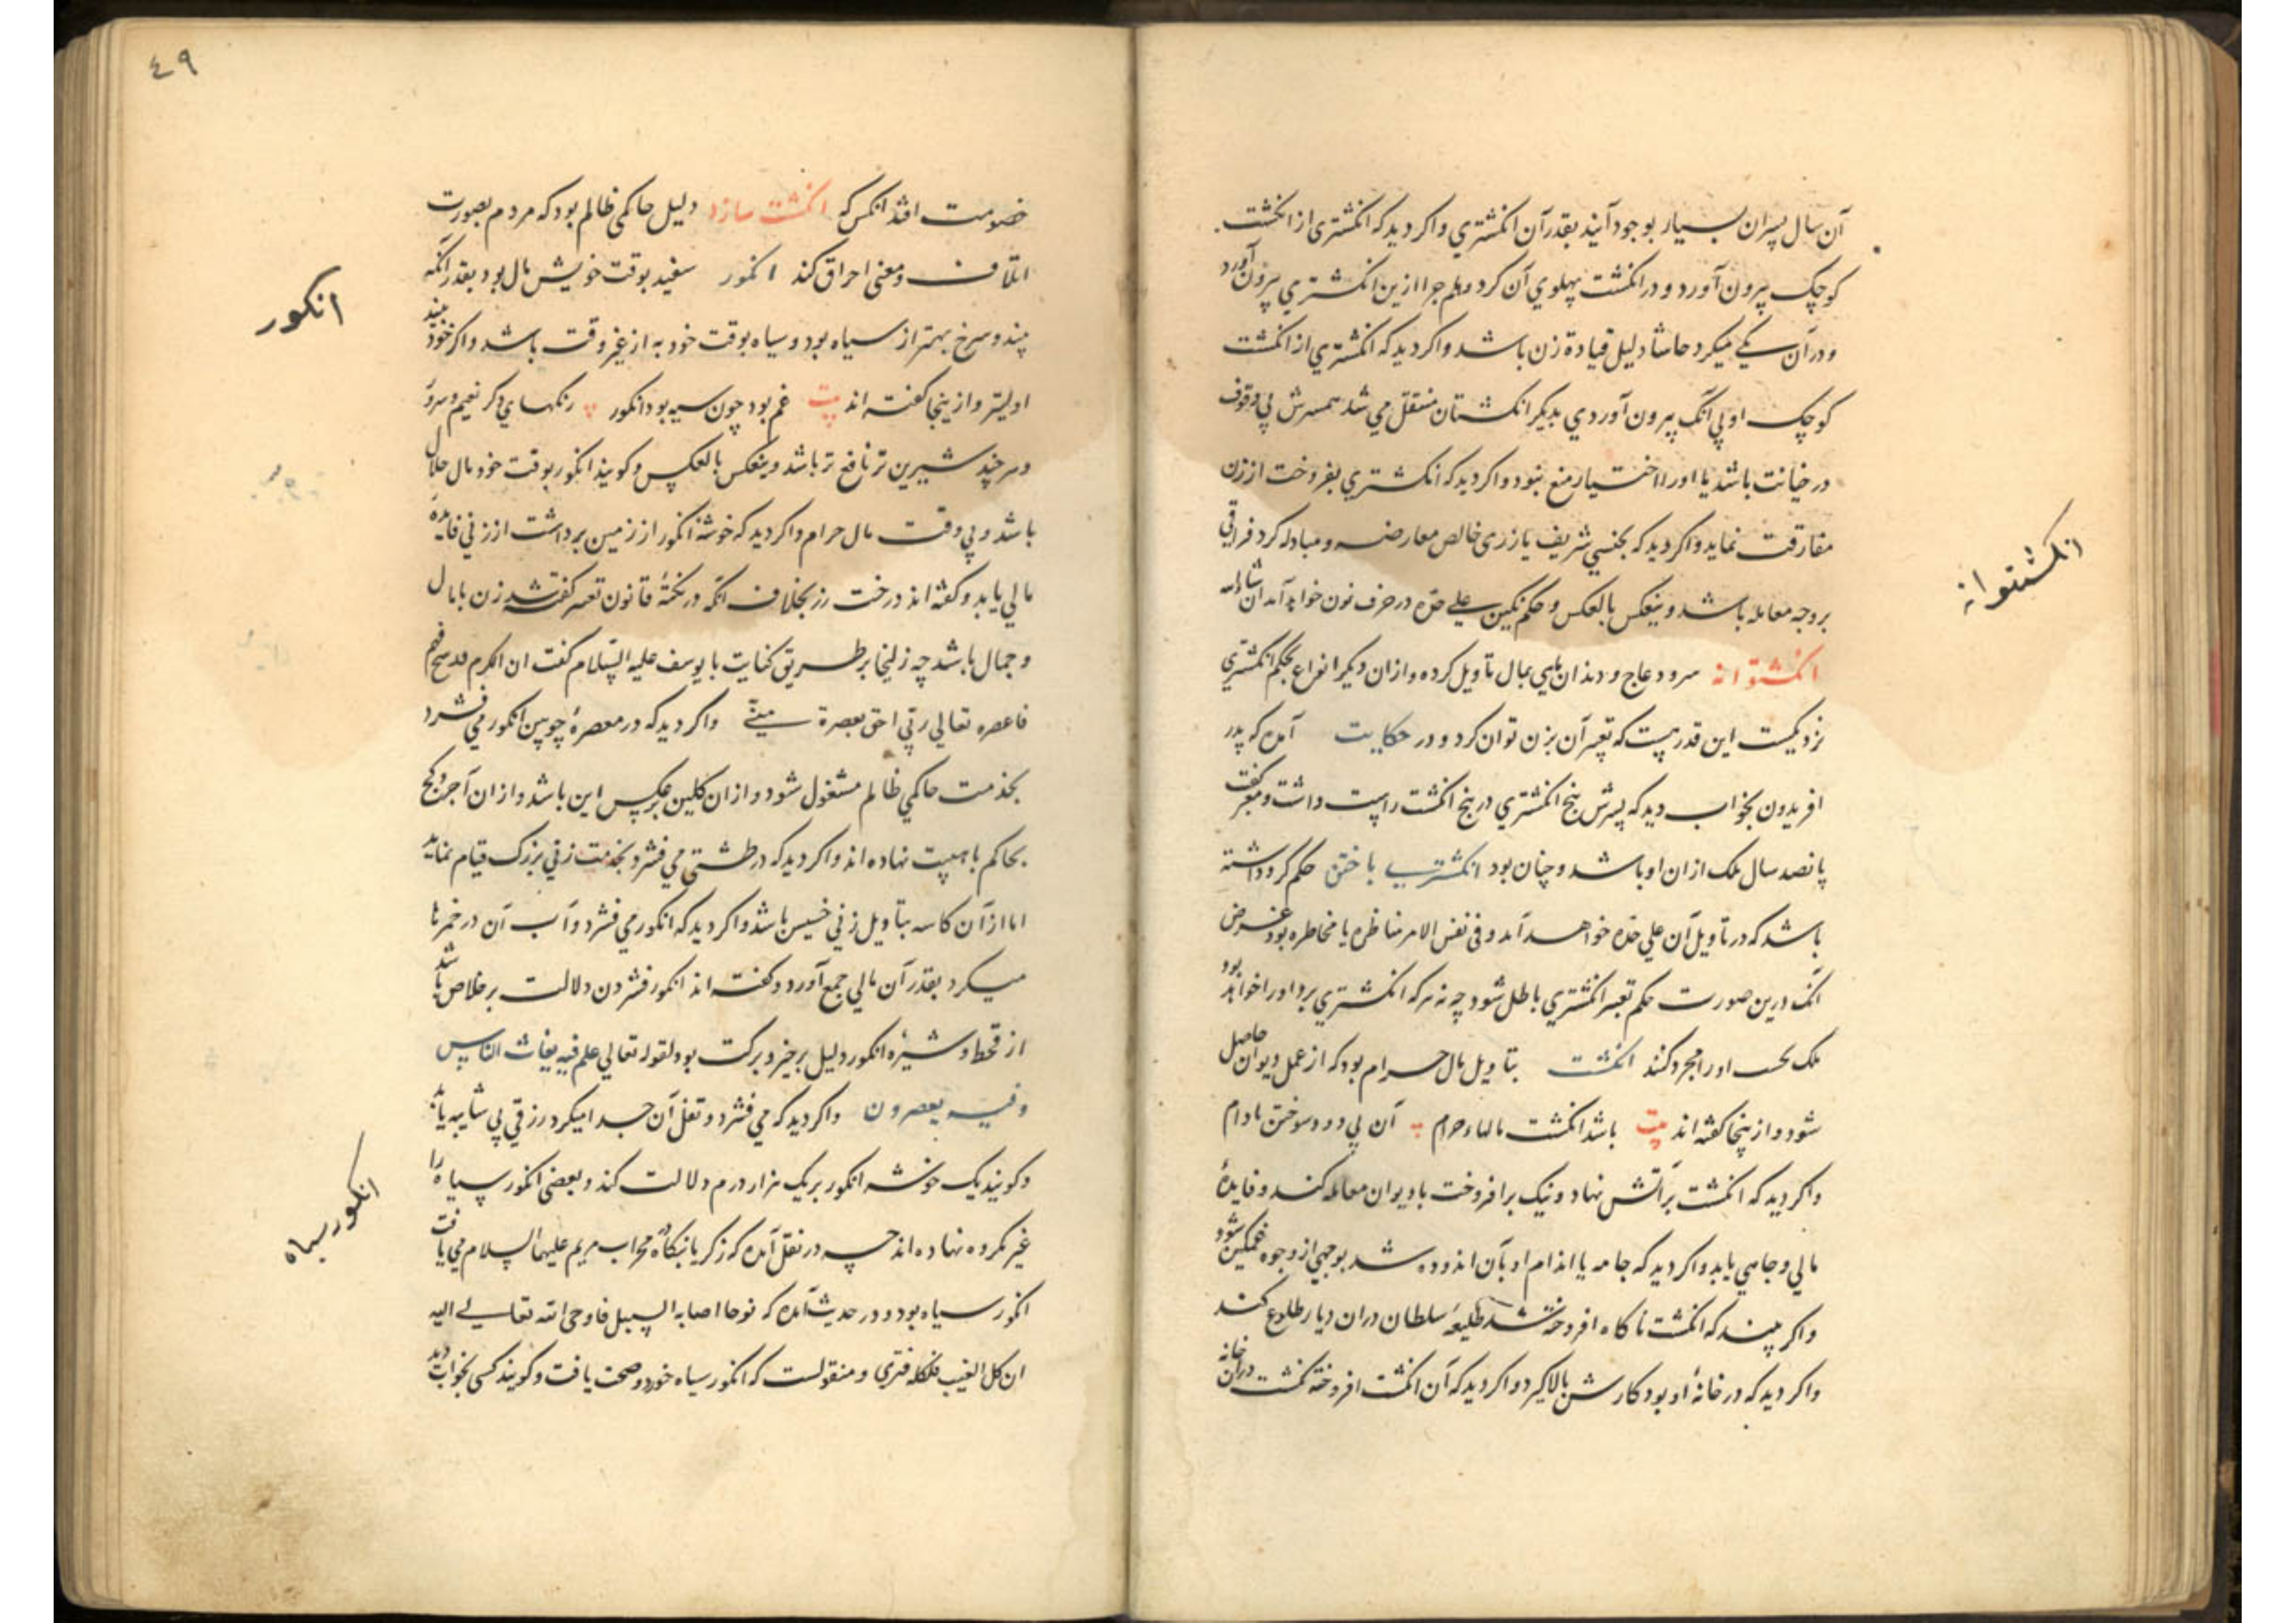 آن سال پسران بسیار بوجود آیند بقدر آن انکشتري و اکر دید که انکشتری از انکشت
کوچک بیرون آورد و در انکشت پهلوي آن کرد و هلم جرا ازین انکشتري بیرون آورد
و در آن یکے میکرد حاشا دلیل قیادة زن باشد و اکر دید که انکشتري از انکشت
کوچک او بي آنک بیرون آوردي بدیکر انکشتان منتقل مي شد همسرش بي وقوف
در خیانت باشد یا او را اختیار منع نبود و اکر دید که انکشتري بفروخت از زن
مفارقت نماید و اکر دید که بجنسي شریف یا زری خالص معارضه و مبادله کرد فراقي
بر وجه معامله باشد و ینعکس بالعکس و حکم نکین علی حده در حرف نون خواهد آمد ان شاء الله
انکشتوانه سرو و عاج و دندان ماهي بمال تاویل کرده و از ان دیکر انواع بحکم انکشتري
نزدیکست این قدر هست که تعبیر آن بزن توان کرد و در حکایت آمده که پدر
افریدون بخواب دید که پسرش پنج انکشتري در پنج انکشت راست داشت و معبر کفت
پانصد سال ملک از ان او باشد و چنان بود انکشتري باختن حکم کرو داشته
باشد که در تاویل آن علی حده خواهد آمد و فی نفس الامر مناظره یا مخاطره بود غرض
آنک درین صورت حکم تعبیر انکشتري باطل شود چه نه هر که انکشتري برد او را خواهد بود
ملک بحت او را مجرد کنند انکشت بتاویل مال حرام بود که از عمل دیوان حاصل
شود و از ینجا کفته اند بیت باشد انکشت مالهاء حرام ب آن بي دود سوختن مادام
و اکر دید که انکشت بر آتش نهاد و نیک برافروخت با دیوان معامله کند و فایدهٔ
مالي و جاهي یابد و اکر دید که جامه یا اندام او بآن اندوده شد بوجهي از وجوه غمکین شود
و اکر بیند که انکشت ناکاه افروخته شد طلیعهٔ سلطان در ان دیار طلوع کند
و اکر دید که در خانهٔ او بود کارش بالا کیرد و اکر دید که آن انکشت افروخته کشت در ان خانه
انکشتوانه
٤٩
خصومت افتد انکس که انکشت سازد دلیل حاکمی ظالم بود که مردم بصورت
اتلاف و معنی احراق کند انکور سفید بوقت خویش مال بود بقدر آنکه
بیند و سرخ بهتر از سیاه بود و سیاه بوقت خود به از غیر وقت باشد و اکر خود بیند
اولیتر و از ینجا کفته اند بیت غم بود چون سیه بود انکور ب رنکهاي دکر نعیم و سرور
و هر چند شیرین تر نافع تر باشد و ینعکس بالعکس و کویند انکور بوقت خود مال حلال
باشد و بي وقت مال حرام و اکر دید که خوشهٔ انکور از زمین برداشت از زني فایدهٔ
مالي یابد و کفته اند درخت رز بخلاف آنکه در نکتهٔ قانون تعبیر کفته شد زن با مال
و جمال باشد چه زلیخا بر طریق کنایت با یوسف علیه السلام کفت ان الکرم قد
فاعصره تعالي ربي احق بعصرة و اکر دید که در معصرهٔ چوبین انکور مي فشرد
بخدمت حاکمي ظالم مشغول شود و از ان کلین برعکس این باشد و از ان آجر و کچ
بحاکم با هیبت نهاده اند و اکر دید که در طشتي مي فشرد بخدمت زني بزرک قیام نماید
اما از آن کاسه بتاویل زني خسیس باشد و اکر دید که انکور مي فشرد و آب آن در خمرها
میکرد بقدر آن مالي جمع آورد و کفته اند انکور فشردن دلالت بر خلاص باشد
از قحط و شیرهٔ انکور دلیل بر خیر و برکت بود لقوله تعالي علم فیه یغاث الناس
و فیه یعصرون و اکر دید که مي فشرد و ثفل آن جدا میکرد رزقي بي شایبه یابد
و کویند یک خوشه انکور بر یک هزار درم دلالت کند و بعضی انکور سیاه را
غیر مکروه نهاده اند چه در نقل آمده که زکریا بنکاه محراب مریم علیهما السلام مي یافت
انکور سیاه بود و در حدیث آمده که نوحا اصابه السبل فاوحی الله تعالے الیه
ان کل العنب فلکله فبري و منقولست که انکور سیاه خورد و صحت یافت و کویند کسی بخواب دید
انکور
انکور سیاه